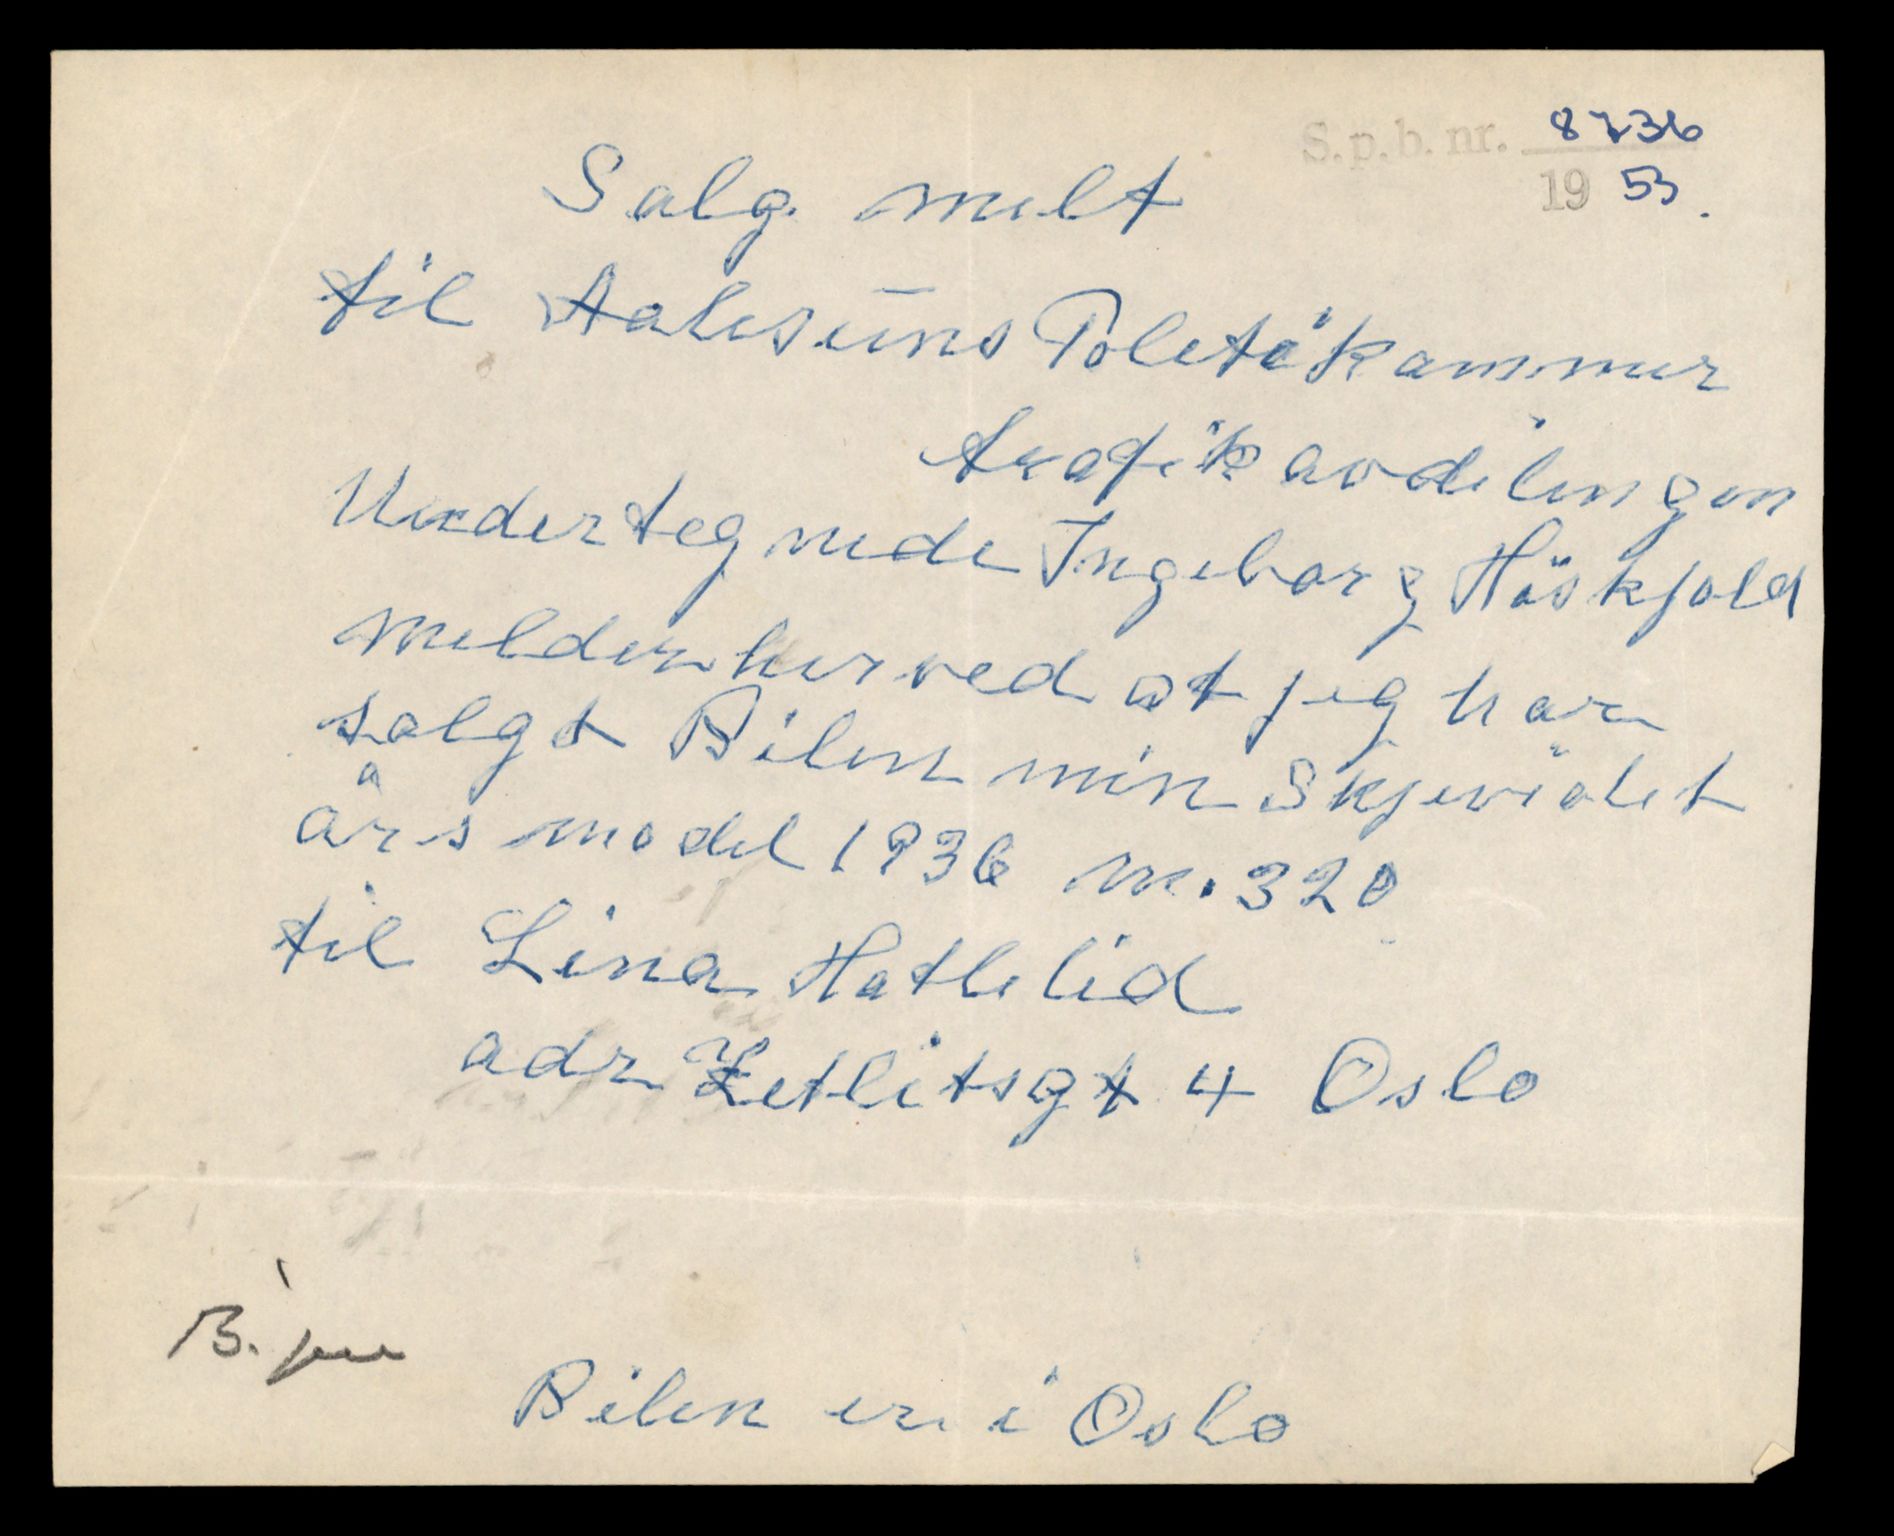 S.p.b. nr. 8736
1953.
Salg melt
til Aalesuns Poletikammer
trafikavdelingen
Undertegnede Ingeborg Höskjold
melder herved at jeg har
salgt Bilen min Skjeviolet
års model 1936 m. 320
til Lina Hatlelid
adr Zetlitsgt 4 Oslo
Bilen er i Oslo